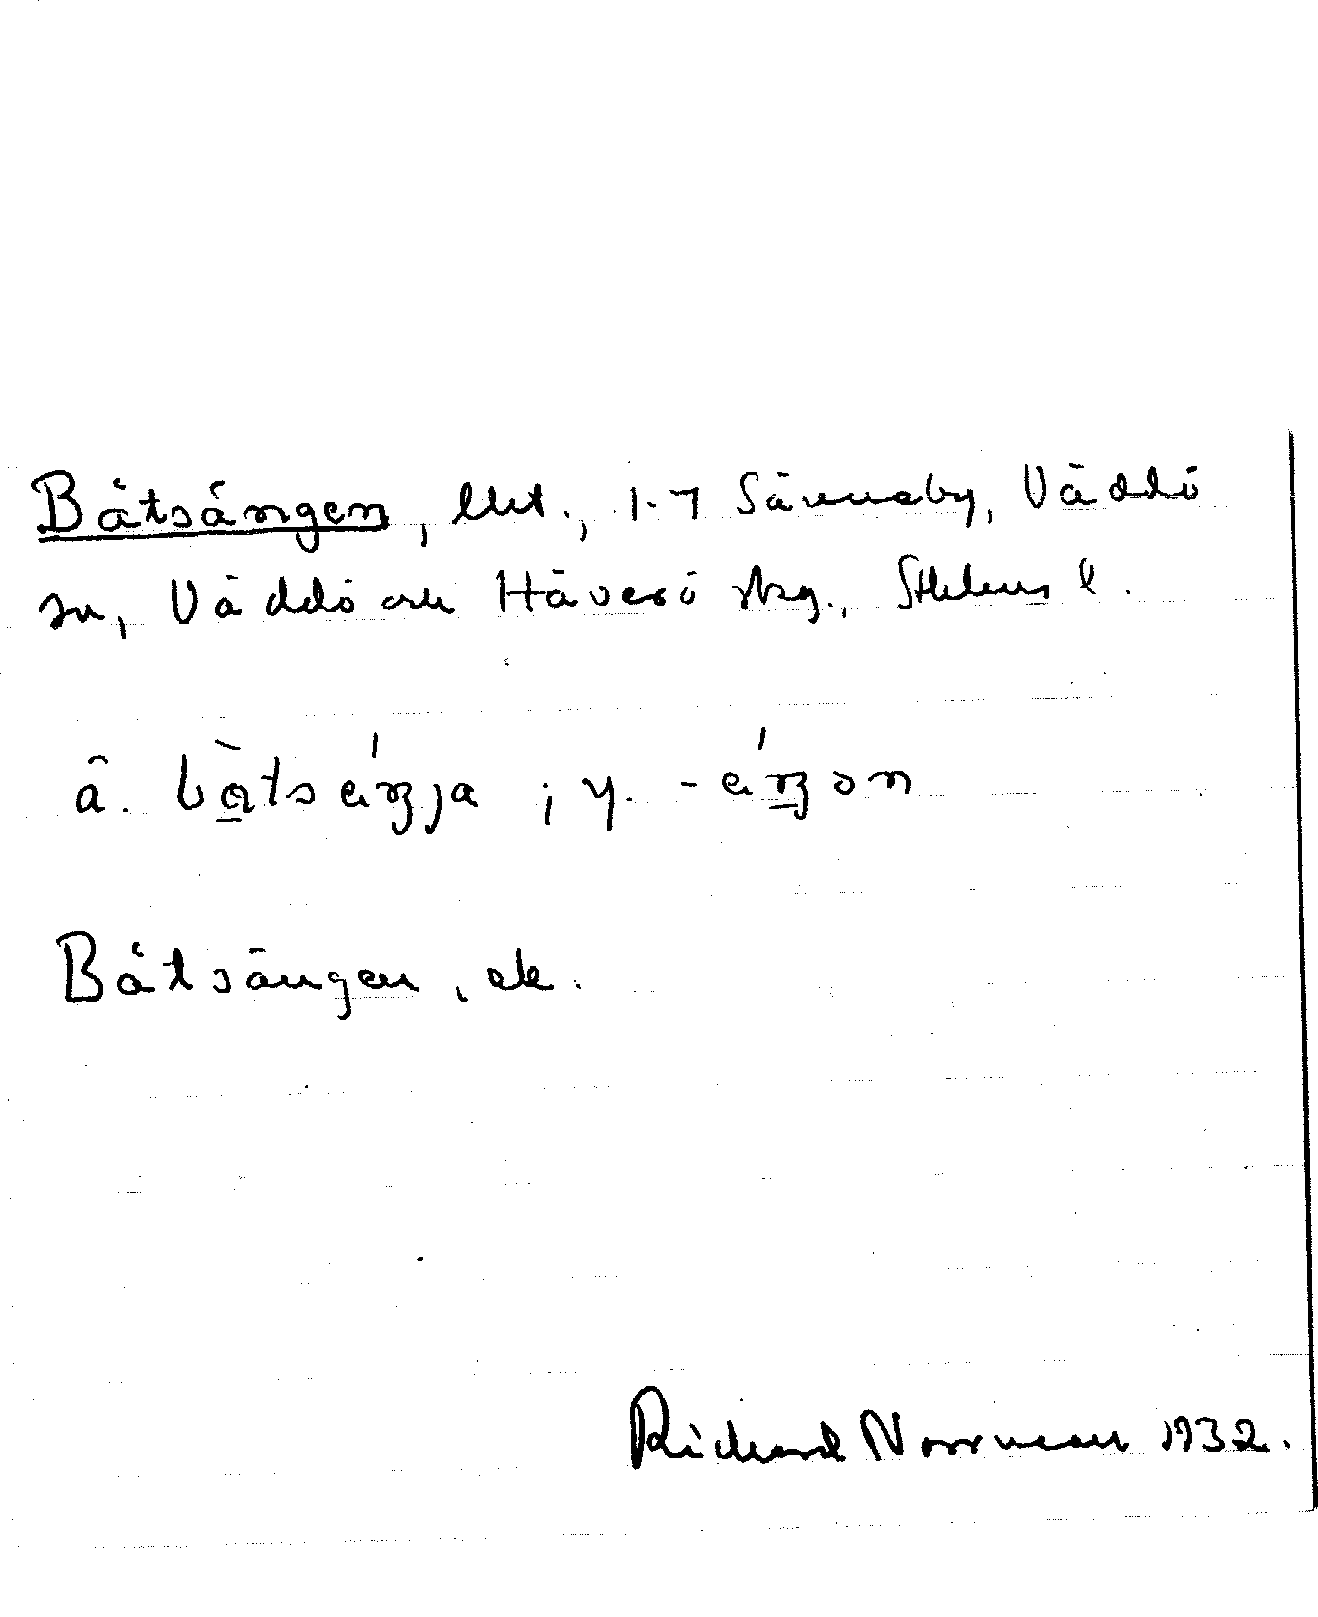 Båtsängen, llht., 1-7 Sännaby, Väddö
sn, Väddö och Häverö skg., Sthlms l.
â. båtsäŋja ; y. -äŋon
Båtsängen, ek.
Richard Norrman 1932.